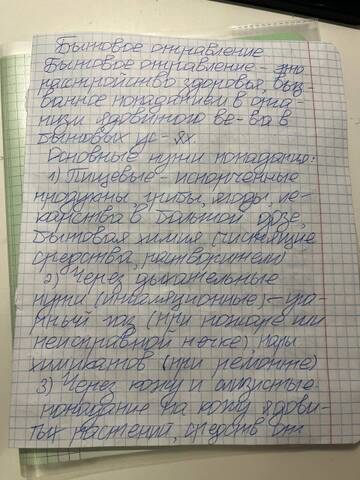 Бытовое отравление
Бытовое отравление - это
расстройство здоровья, выз-
ванное попаданием в орга-
низм ядовитого ве-ва в
бытовых ус-ях.
Основные пути попадания:
1) Пищевые - испорченные
продукты, грибы, ягоды, ле-
карства в большой дозе,
бытовая химия (чистящие
средства, растворители)
2) Через дыхательные
пути (ингаляционные) - уга-
рный газ (при пожаре или
неисправной печке) пары
химикатов (при ремонте)
3) Через кожу и слизистые:
попадание на кожу ядови-
тых растений, средств от